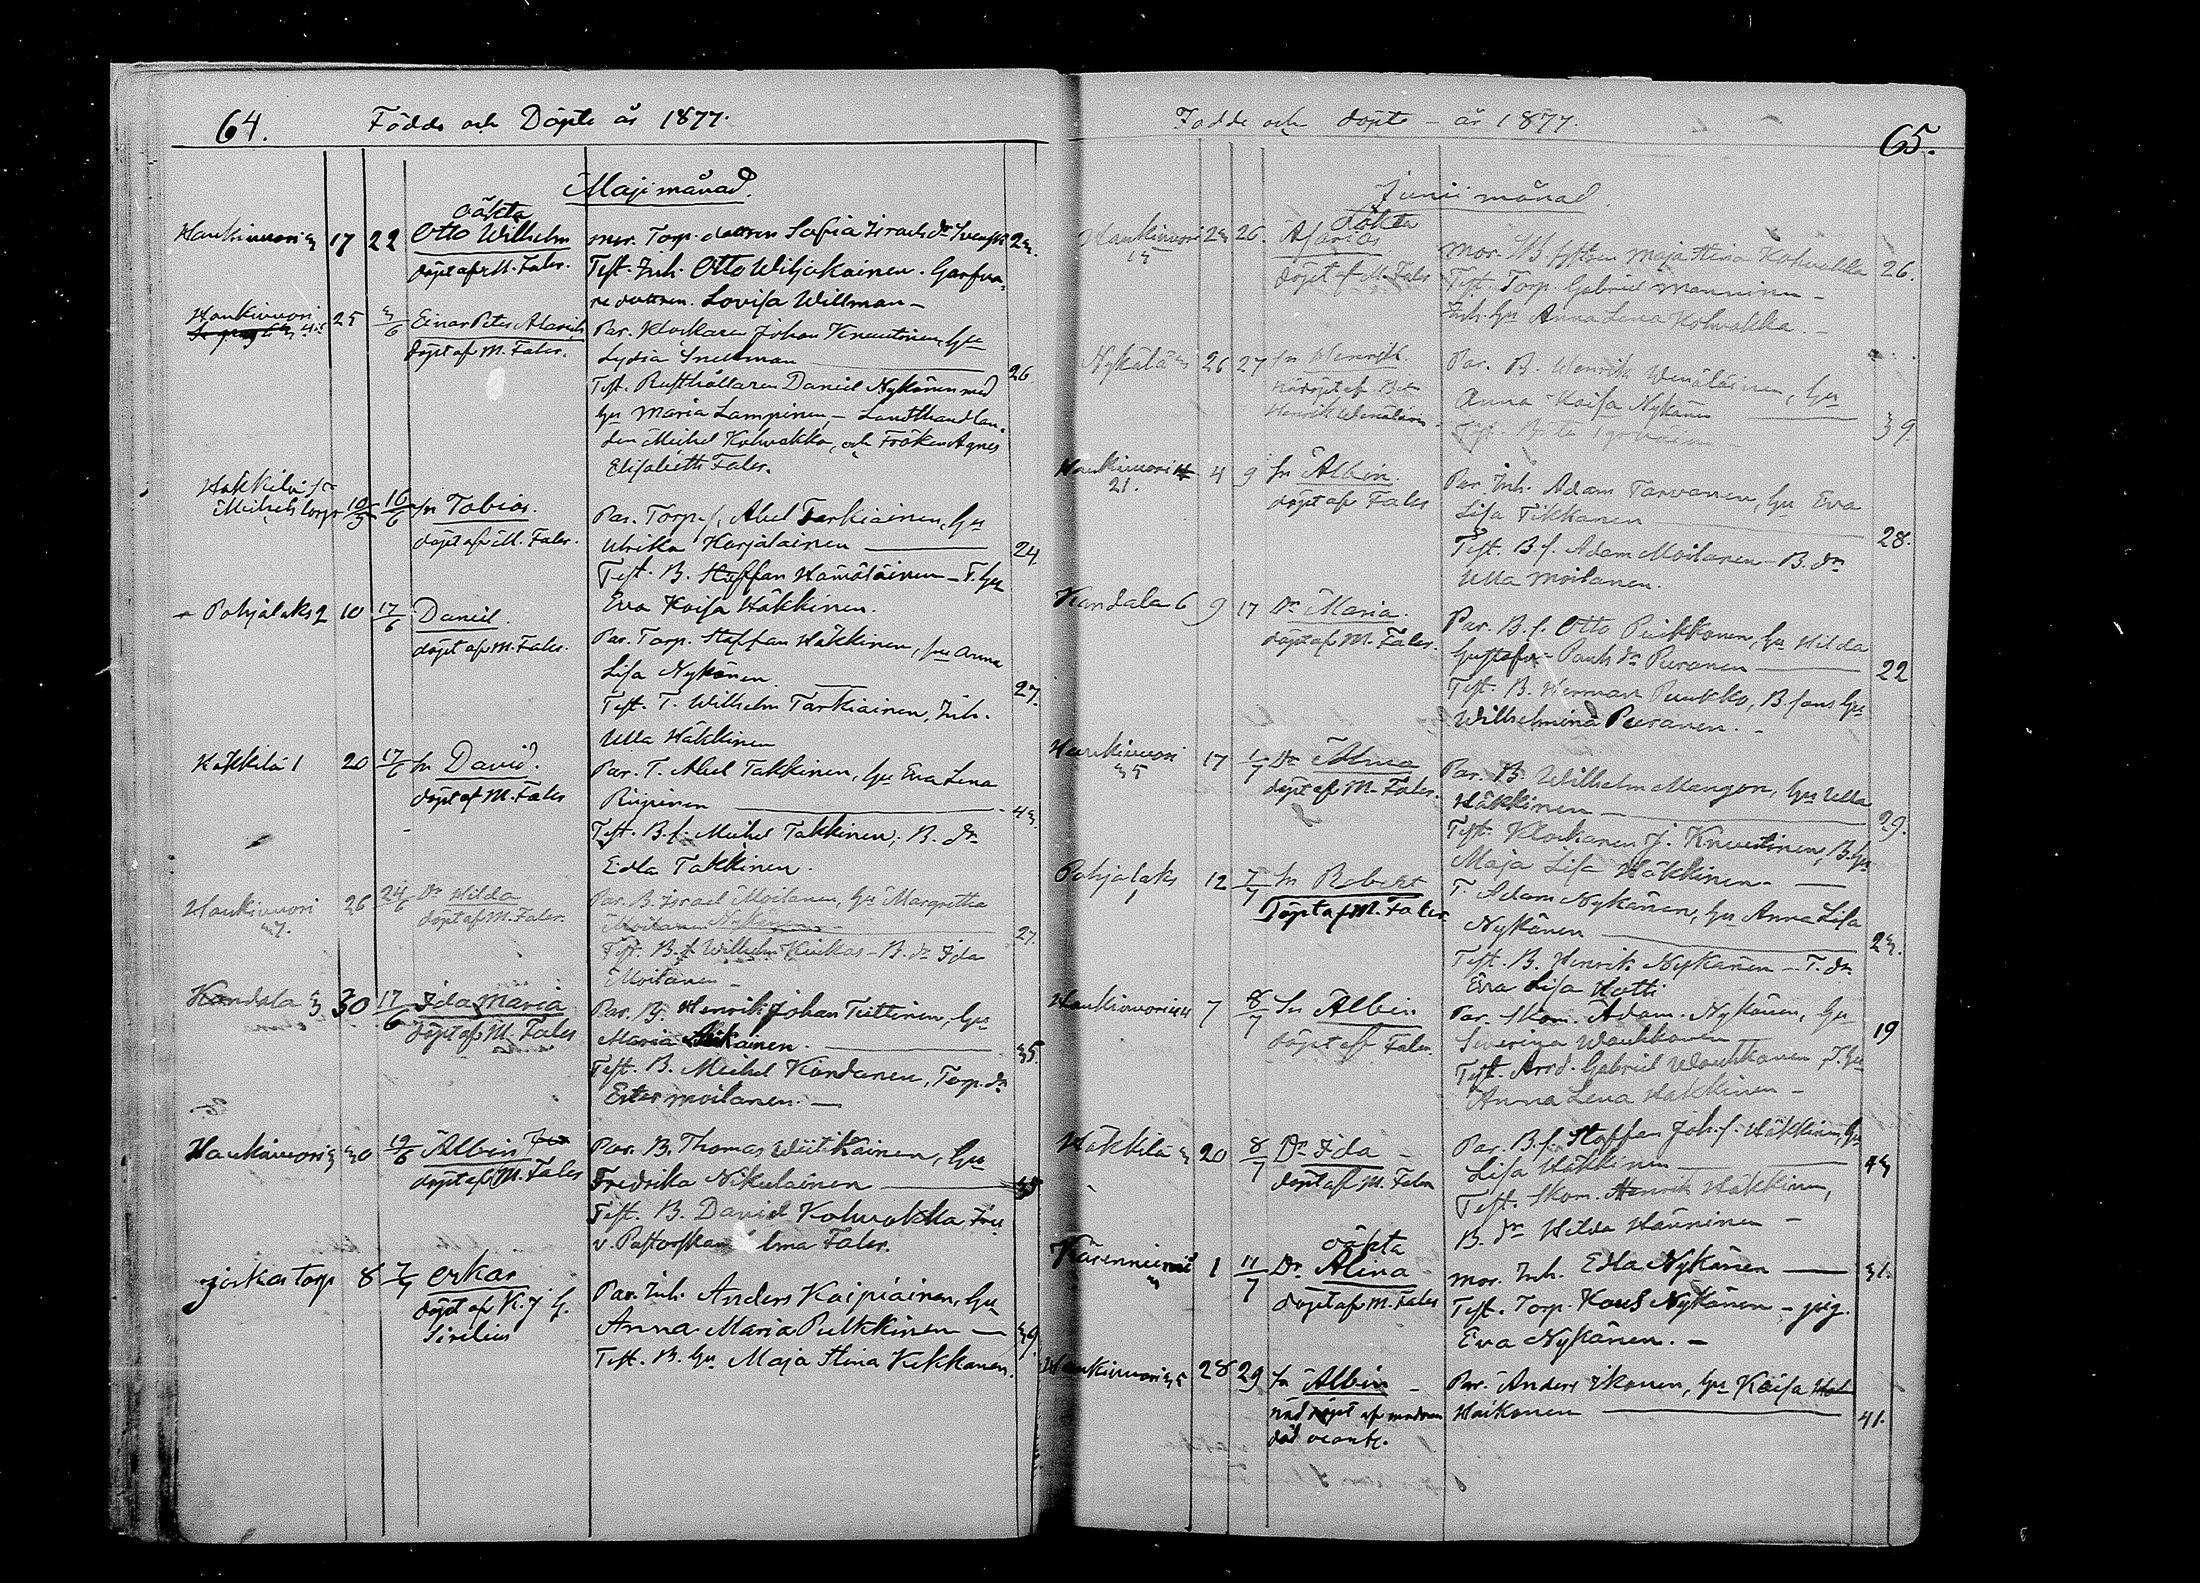 64. Födde och Döpte år 1877.
Maji månad.
Haukivuori 3 17 22 oäkta
Otto Wilhelm
döpt af M. Faler.
mor. Torp. dottren Sofia Israels dr 23.
Test. Inh. Otto Wiljakainen. Garfva-
re dottren. Lovisa Willman –
Haukivuori 25 3/6 Einar Peter Alarik
döpt af M. Faler.
Par. Klockaren Johan Knuutinen, hu
Lydia Snellman 26
Test. Rusthållaren Daniel Nykänen med
hu Maria Lampinen, – Landthandlan-
den Michel Kohvakka, och Fröken Agnes
Elisabeth Faler.
Häkkilä
Michels torp 10/5 16/6 Sn Tobias.
döpt af M. Faler.
Par. Torp. s. Abel Tarkiainen, hu
Ulrika Karjalainen 24
Test. B. Staffan Hämäläinen – T. hu
Eva Kaisa Häkkinen.
Pohjalaks 2 10 17/6 Daniel.
döpt af M. Faler.
Par. Torp. Staffan Häkkinen, hu Anna
Lisa Nykänen 27.
Test. T. Wilhelm Tarkiainen, Inh.
Ulla Häkkinen
Häkkilä 1 20 17/6 Sn David.
döpt af M. Faler
Par. T. Abel Takkinen, hu Eva Lena
Riipinen 43.
Test. B. s. Michel Takkinen, B. dr
Edla Takkinen.
Haukivuori 37. 26 24/6 Dr Hilda
döpt af M. Faler.
Par. B. Israel Moilanen, hu Margretta
Moilanen Nykänen 27.
Test. B. s. Wilhelm Kinkas – B. dr Ida
Moilanen –
Kandala 3 30 17/6 Ida Maria
döpt af M. Faler
Par. B. Henrik Johan Tiittinen, hu
Maria 35.
Test. B. Michel Kandanen, Torp. dr
Ester Moilanen. –
Haukivuori 3 30 19/6 Albin
döpt af M. Faler
Par. B. Thomas Wiitikainen, hu
Fredrika Nikulainen 35
Test. B. Daniel Kohvakka, Fru
v. Pastorskan Alma Faler.
Joskas torp 8 7/7 Oskar
döpt af K. J. G.
Sirelius
Par. Inh. Anders Kaipiainen, hu
Anna Maria Pulkkinen 39.
Test. B. hu Maja Stina Kekkonen.
Födde och döpte – år 1877. 65.
Junii månad.
Haukivuori 15 23 26. oäkta
Asarias
döpt af M. Faler
mor. Maja Stina Kohvakka 26.
Test. Torp. Gabriel Manninen –
Inh. hu Anna Lena Kohvakka. –
Nykälä 26 27 Sn Henrik.
nöddöpt af
Henrik Wenäläinen
Par. B. Henrik Wenäläinen, hu
Anna Kaisa Nykänen 39.
Haukivuori 21. 4 9 Sn Albin.
döpt af Faler
Par. Inh. Adam Tarvanen, hu Eva
Lisa Tikkanen 28.
Test. B. s. Adam Moilanen – B. dr
Ulla Moilanen.
Kandala 6 9 17 Dr Maria.
döpt af M. Faler.
Par. B. s. Otto Puikkonen, hu Hilda
Gustafva – Pauls dr Puranen 22
Test. B. Herman Puukko, B. sons hu
Wilhelmina Puranen. –
Haukivuori 35 17 1/7 Dr Alma
döpt af M. Faler.
Par. B. Wilhelm Mangon, hu Ulla
Häkkinen 29.
Test. Klockaren J. Knuutinen, B. hu
Maja Lisa Häkkinen –
Pohjalaks 1 12 7/7 Sn Robert
Döpt af M. Faler.
T. Adam Nykänen, hu Anna Lisa
Nykänen 23.
Test. B. Henrik Nykänen – T. dr
Eva Lisa Hutti
Haukivuori 44 7 8/7 Sn Albin
döpt af Faler.
Par. Skom. Adam Nykänen, hu
Severina Waukkonen 19
Test. Arrd. Gabriel Waukkonen, T. hu
Anna Lena Häkkinen –
Häkkilä 3 20 8/7 Dr Ida –
döpt af M. Faler
Par. B. s. Staffan Joh. s. Häkkinen, hu
Lisa Häkkinen 43
Test. Skom. Henrik Häkkinen,
B. dr Hilda Hänninen –
3 1 11/7 oäkta
Dr Alina
döpt af M. Faler
mor. Inh. Edla Nykänen 31.
Test. Torp. Nykänen – pig.
Eva Nykänen. –
Haukivuori 35 28 29 Sn Albin –
nöd döpt af modren
död
Par. Anders Ikonen, hu Kaisa
Haikonen 41.